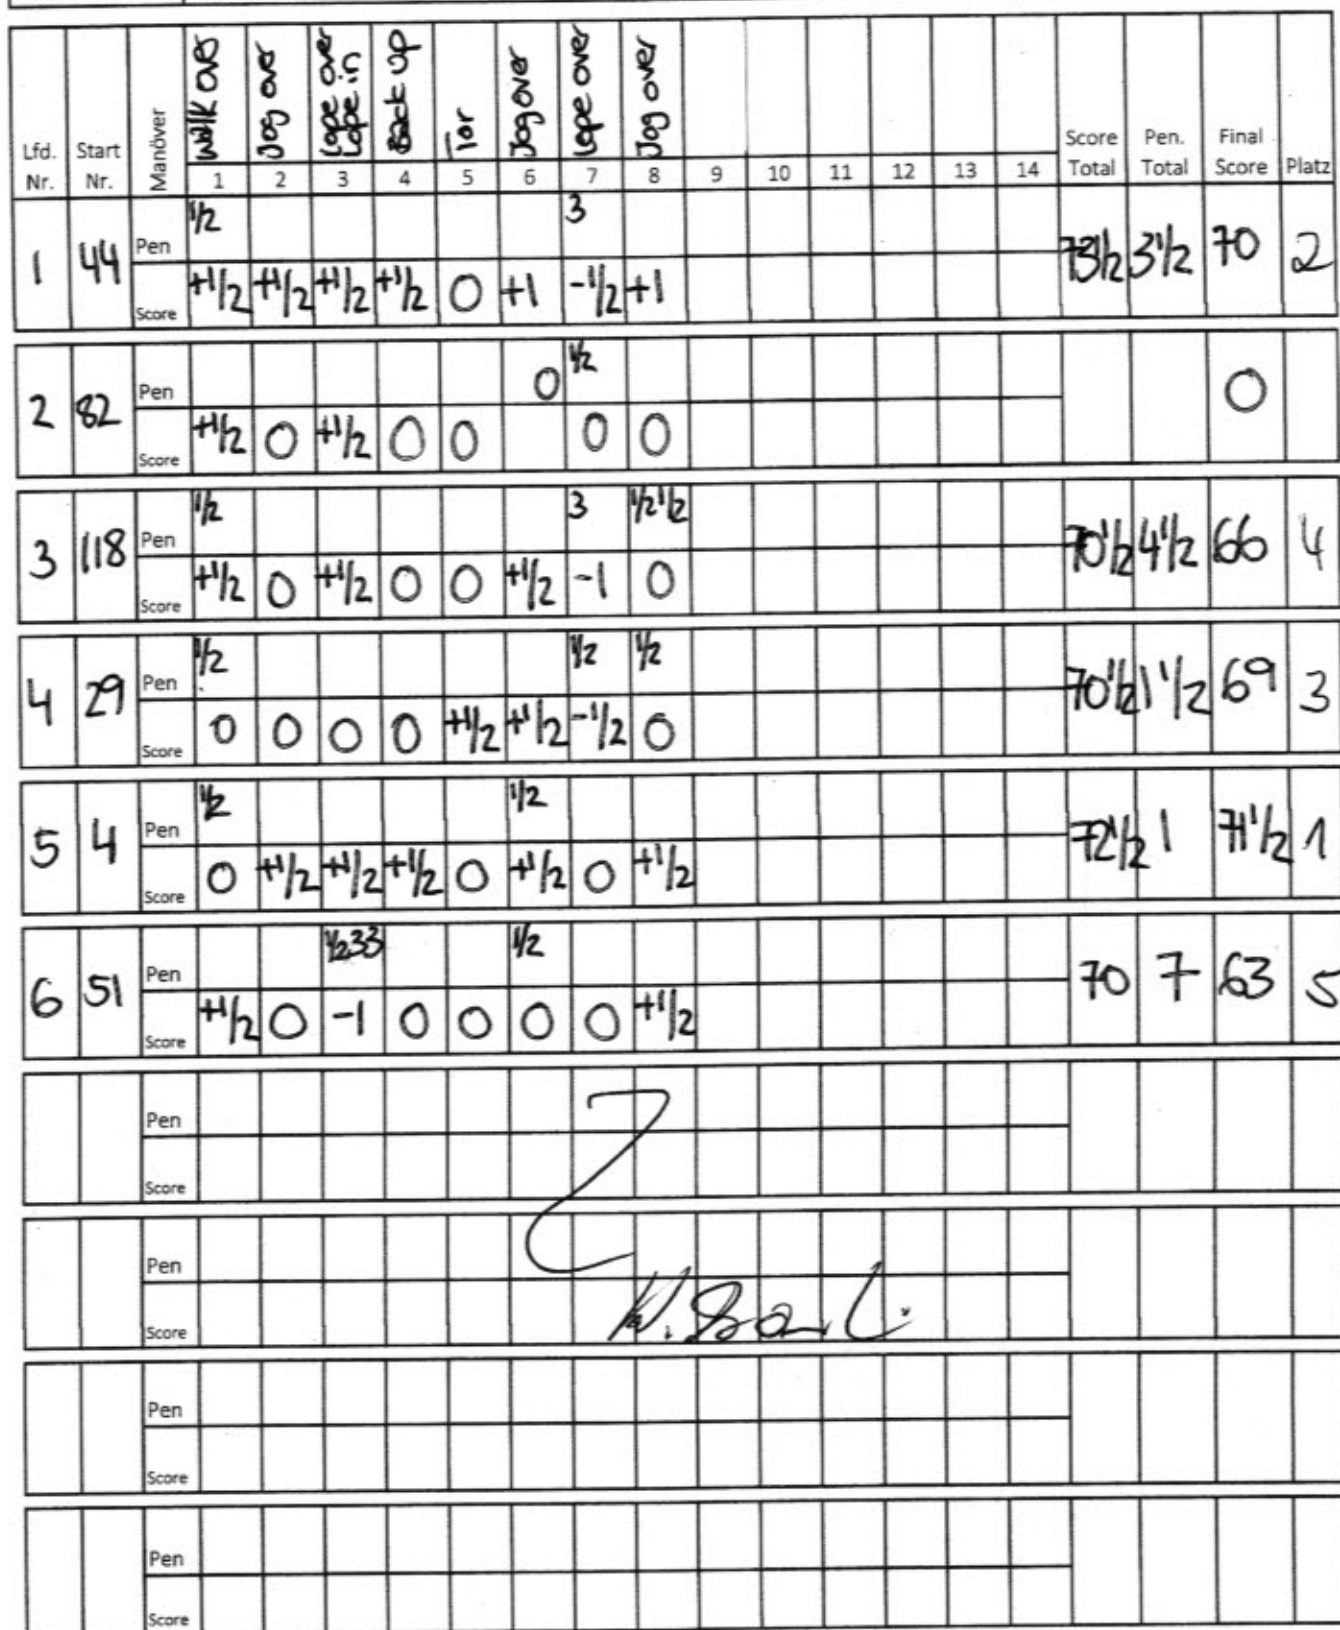 Lfd. Nr. Start Nr. Manöver Walk over Jog over Lope over Lope in Back up Tor Jog over Lope over Jog over Score Total Pen. Total Final Score Platz
1 2 3 4 5 6 7 8 9 10 11 12 13 14
Pen 1/2 3
1 44 73 1/2 3 1/2 70 2
Score +1/2 +1/2 +1/2 +1/2 0 +1 -1/2 +1
Pen 0 1/2
2 82 0
Score +1/2 0 +1/2 0 0 0 0
Pen 1/2 3 1/2 1/2
3 118 70 1/2 4 1/2 66 4
Score +1/2 0 +1/2 0 0 +1/2 -1 0
Pen 1/2 1/2 1/2
4 29 70 1/2 1 1/2 69 3
Score 0 0 0 0 +1/2 +1/2 -1/2 0
Pen 1/2 1/2
5 4 72 1/2 1 71 1/2 1
Score 0 +1/2 +1/2 +1/2 0 +1/2 0 +1/2
Pen 1/2 3 3 1/2
6 51 70 7 63 5
Score +1/2 0 -1 0 0 0 0 +1/2
Pen
Score
Pen
Score
Pen
Score
Pen
Score